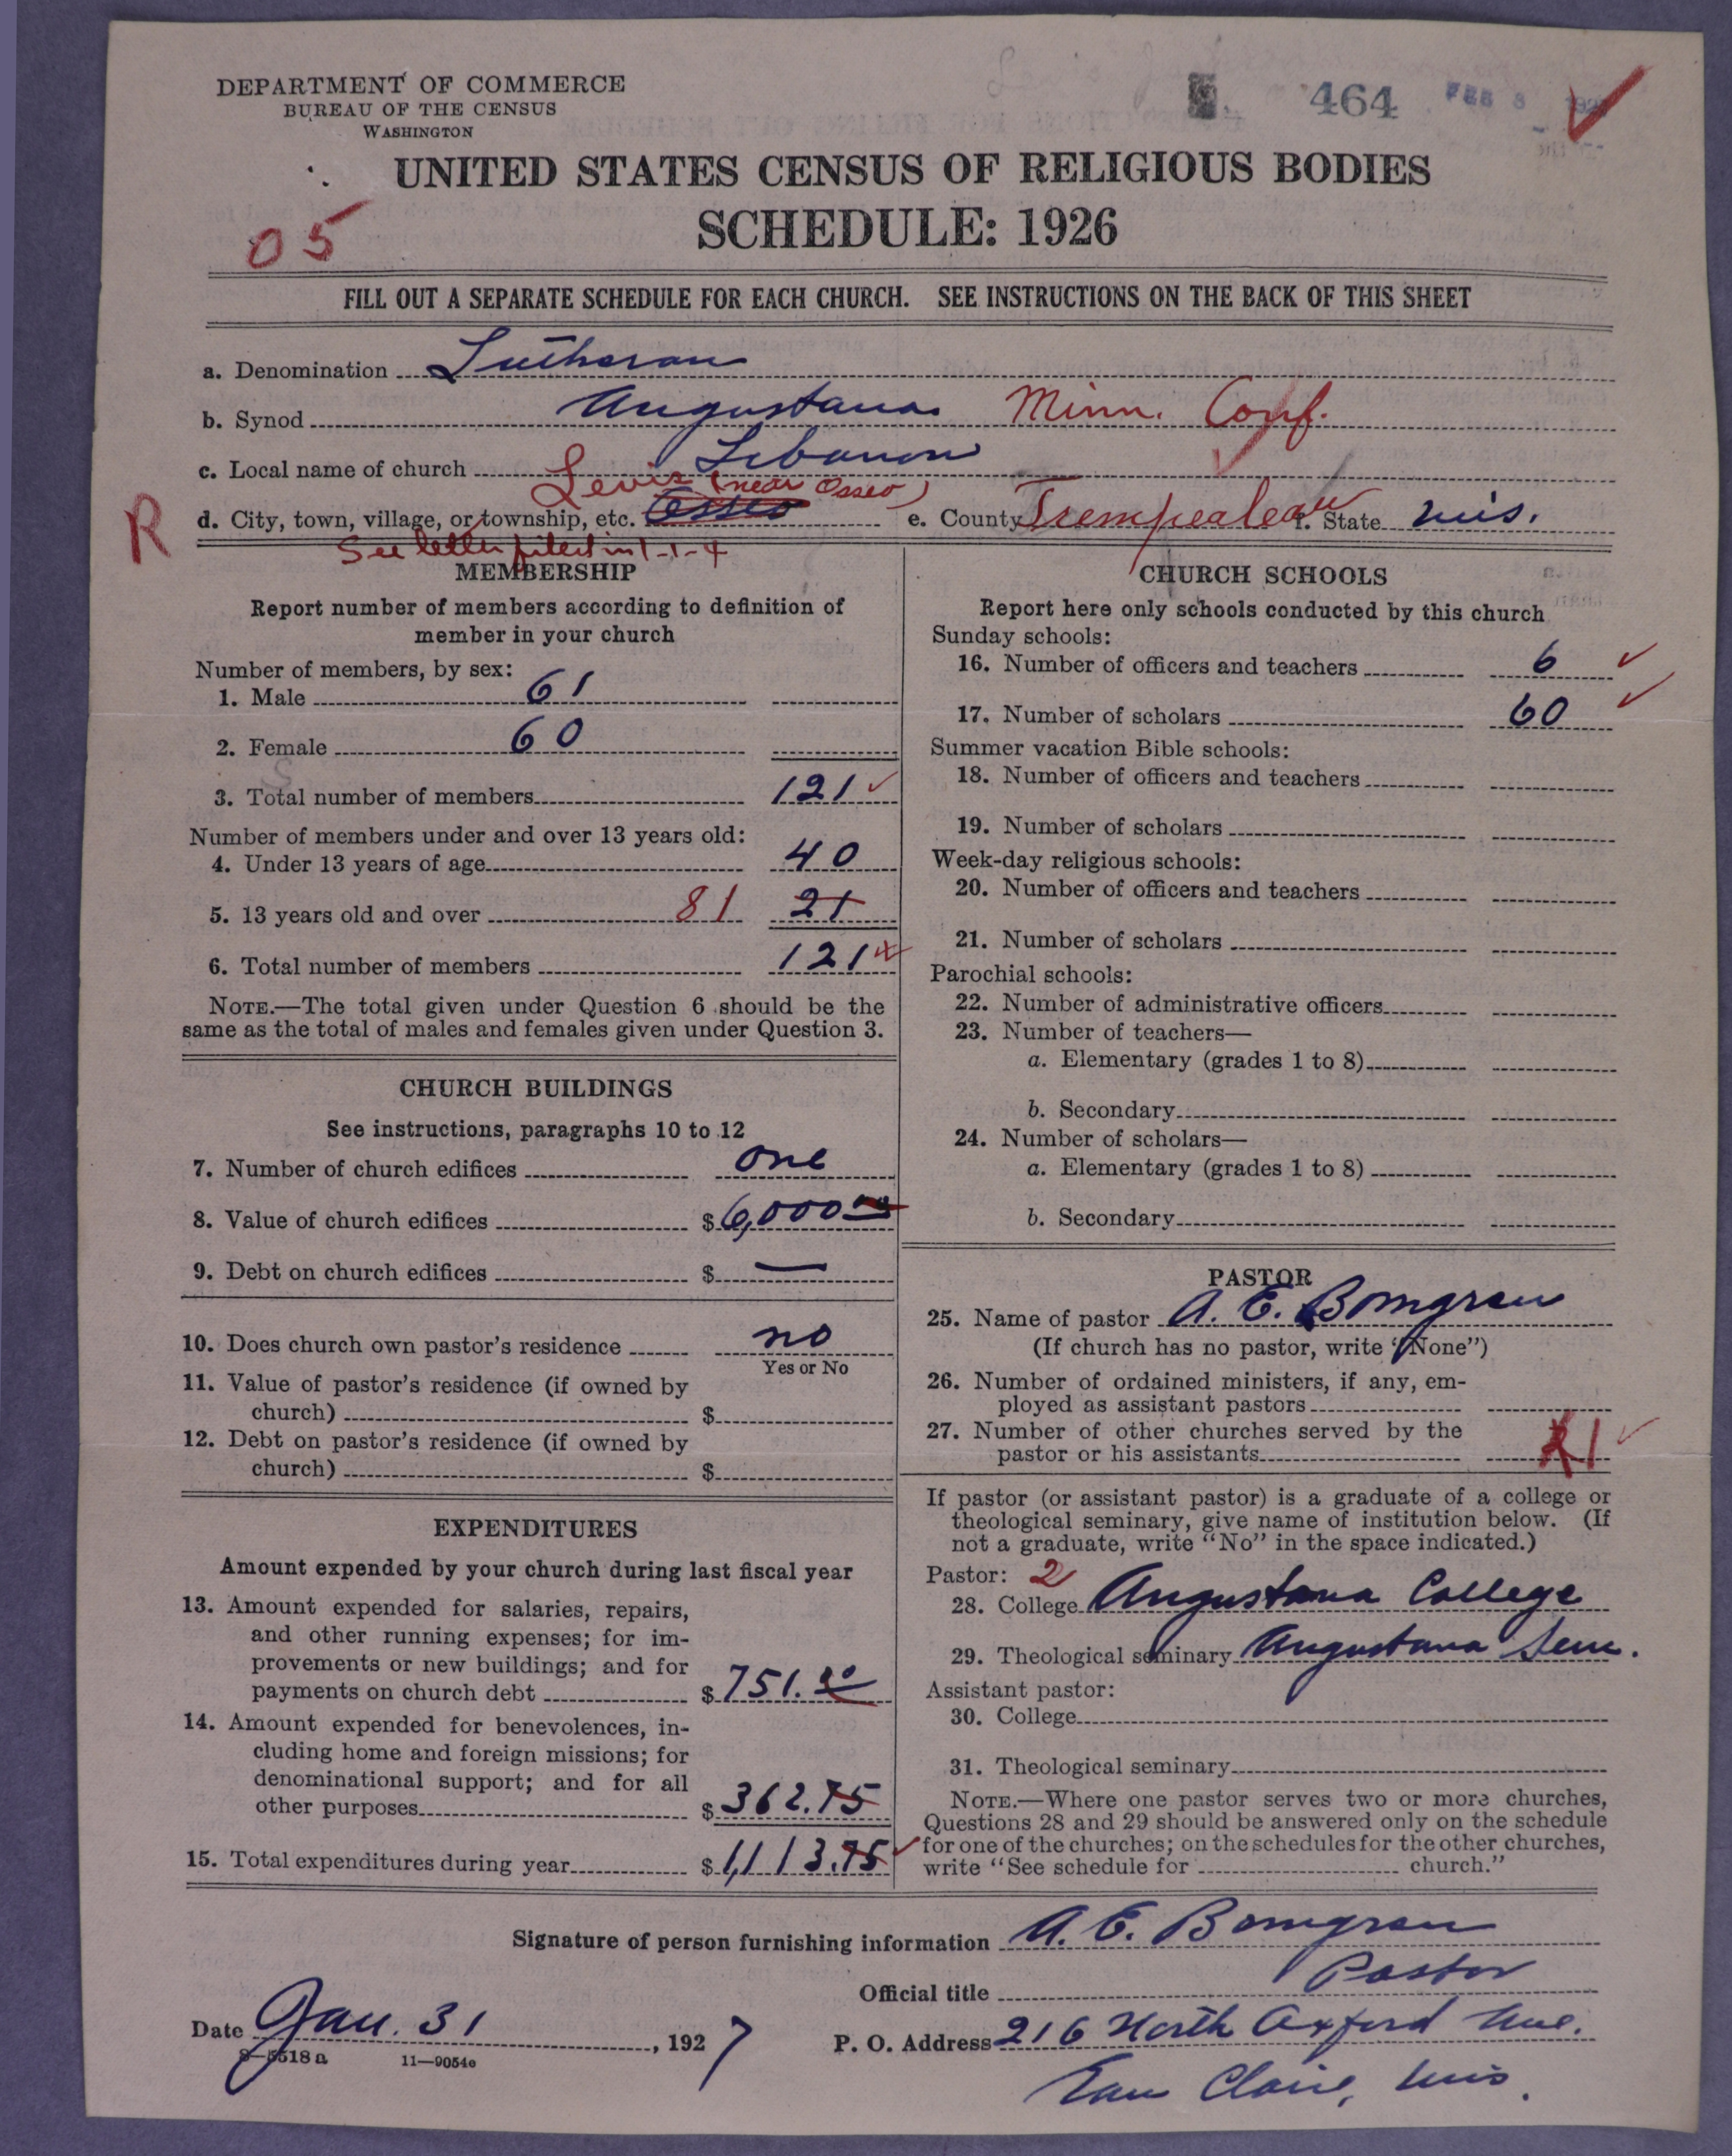 DEPARTMENT OF COMMERCE
BUREAU OF THE CENSUS
WASHINGTON
464 FEB 8
UNITED STATES CENSUS OF RELIGIOUS BODIES
SCHEDULE: 1926
05
FILL OUT A SEPARATE SCHEDULE FOR EACH CHURCH. SEE INSTRUCTIONS ON THE BACK OF THIS SHEET
a. Denomination Lutheran
b. Synod Augustana. Minn. Conf.
c. Local name of church Lebanon
Levis (near Osseo)
R
d. City, town, village, or township, etc. Osseo e. County Trempealeau f. State Wis.
See letter filed in 1-1-4
MEMBERSHIP
Report number of members according to definition of
member in your church
Number of members, by sex:
1. Male 61
2. Female 60
3. Total number of members 121
Number of members under and over 13 years old:
4. Under 13 years of age 40
5. 13 years old and over 81 21
6. Total number of members 121
NOTE.—The total given under Question 6 should be the
same as the total of males and females given under Question 3.
CHURCH BUILDINGS
See instructions, paragraphs 10 to 12
7. Number of church edifices one
8. Value of church edifices $ 6,000 00
9. Debt on church edifices $ —
10. Does church own pastor's residence no
Yes or No
11. Value of pastor's residence (if owned by
church) $
12. Debt on pastor's residence (if owned by
church) $
EXPENDITURES
Amount expended by your church during last fiscal year
13. Amount expended for salaries, repairs,
and other running expenses; for im-
provements or new buildings; and for
payments on church debt $ 751.
14. Amount expended for benevolences, in-
cluding home and foreign missions; for
denominational support; and for all
other purposes $ 362.75
15. Total expenditures during year $ 1,113.75
CHURCH SCHOOLS
Report here only schools conducted by this church
Sunday schools:
16. Number of officers and teachers 6
17. Number of scholars 60
Summer vacation Bible schools:
18. Number of officers and teachers
19. Number of scholars
Week-day religious schools:
20. Number of officers and teachers
21. Number of scholars
Parochial schools:
22. Number of administrative officers
23. Number of teachers—
a. Elementary (grades 1 to 8)
b. Secondary
24. Number of scholars—
a. Elementary (grades 1 to 8)
b. Secondary
PASTOR
25. Name of pastor A. E. Bomgren
(If church has no pastor, write "None")
26. Number of ordained ministers, if any, em-
ployed as assistant pastors
27. Number of other churches served by the
pastor or his assistants 1
If pastor (or assistant pastor) is a graduate of a college or
theological seminary, give name of institution below. (If
not a graduate, write "No" in the space indicated.)
Pastor: 2
28. College Augustana College
29. Theological seminary Augustana Sem.
Assistant pastor:
30. College
31. Theological seminary
NOTE.—Where one pastor serves two or more churches,
Questions 28 and 29 should be answered only on the schedule
for one of the churches; on the schedules for the other churches,
write "See schedule for church."
Signature of person furnishing information A. E. Bomgren
Official title Pastor
Date Jan. 31, 1927 P. O. Address 216 North Oxford Ave.
8—5518a 11—9054e
Eau Claire, Wis.